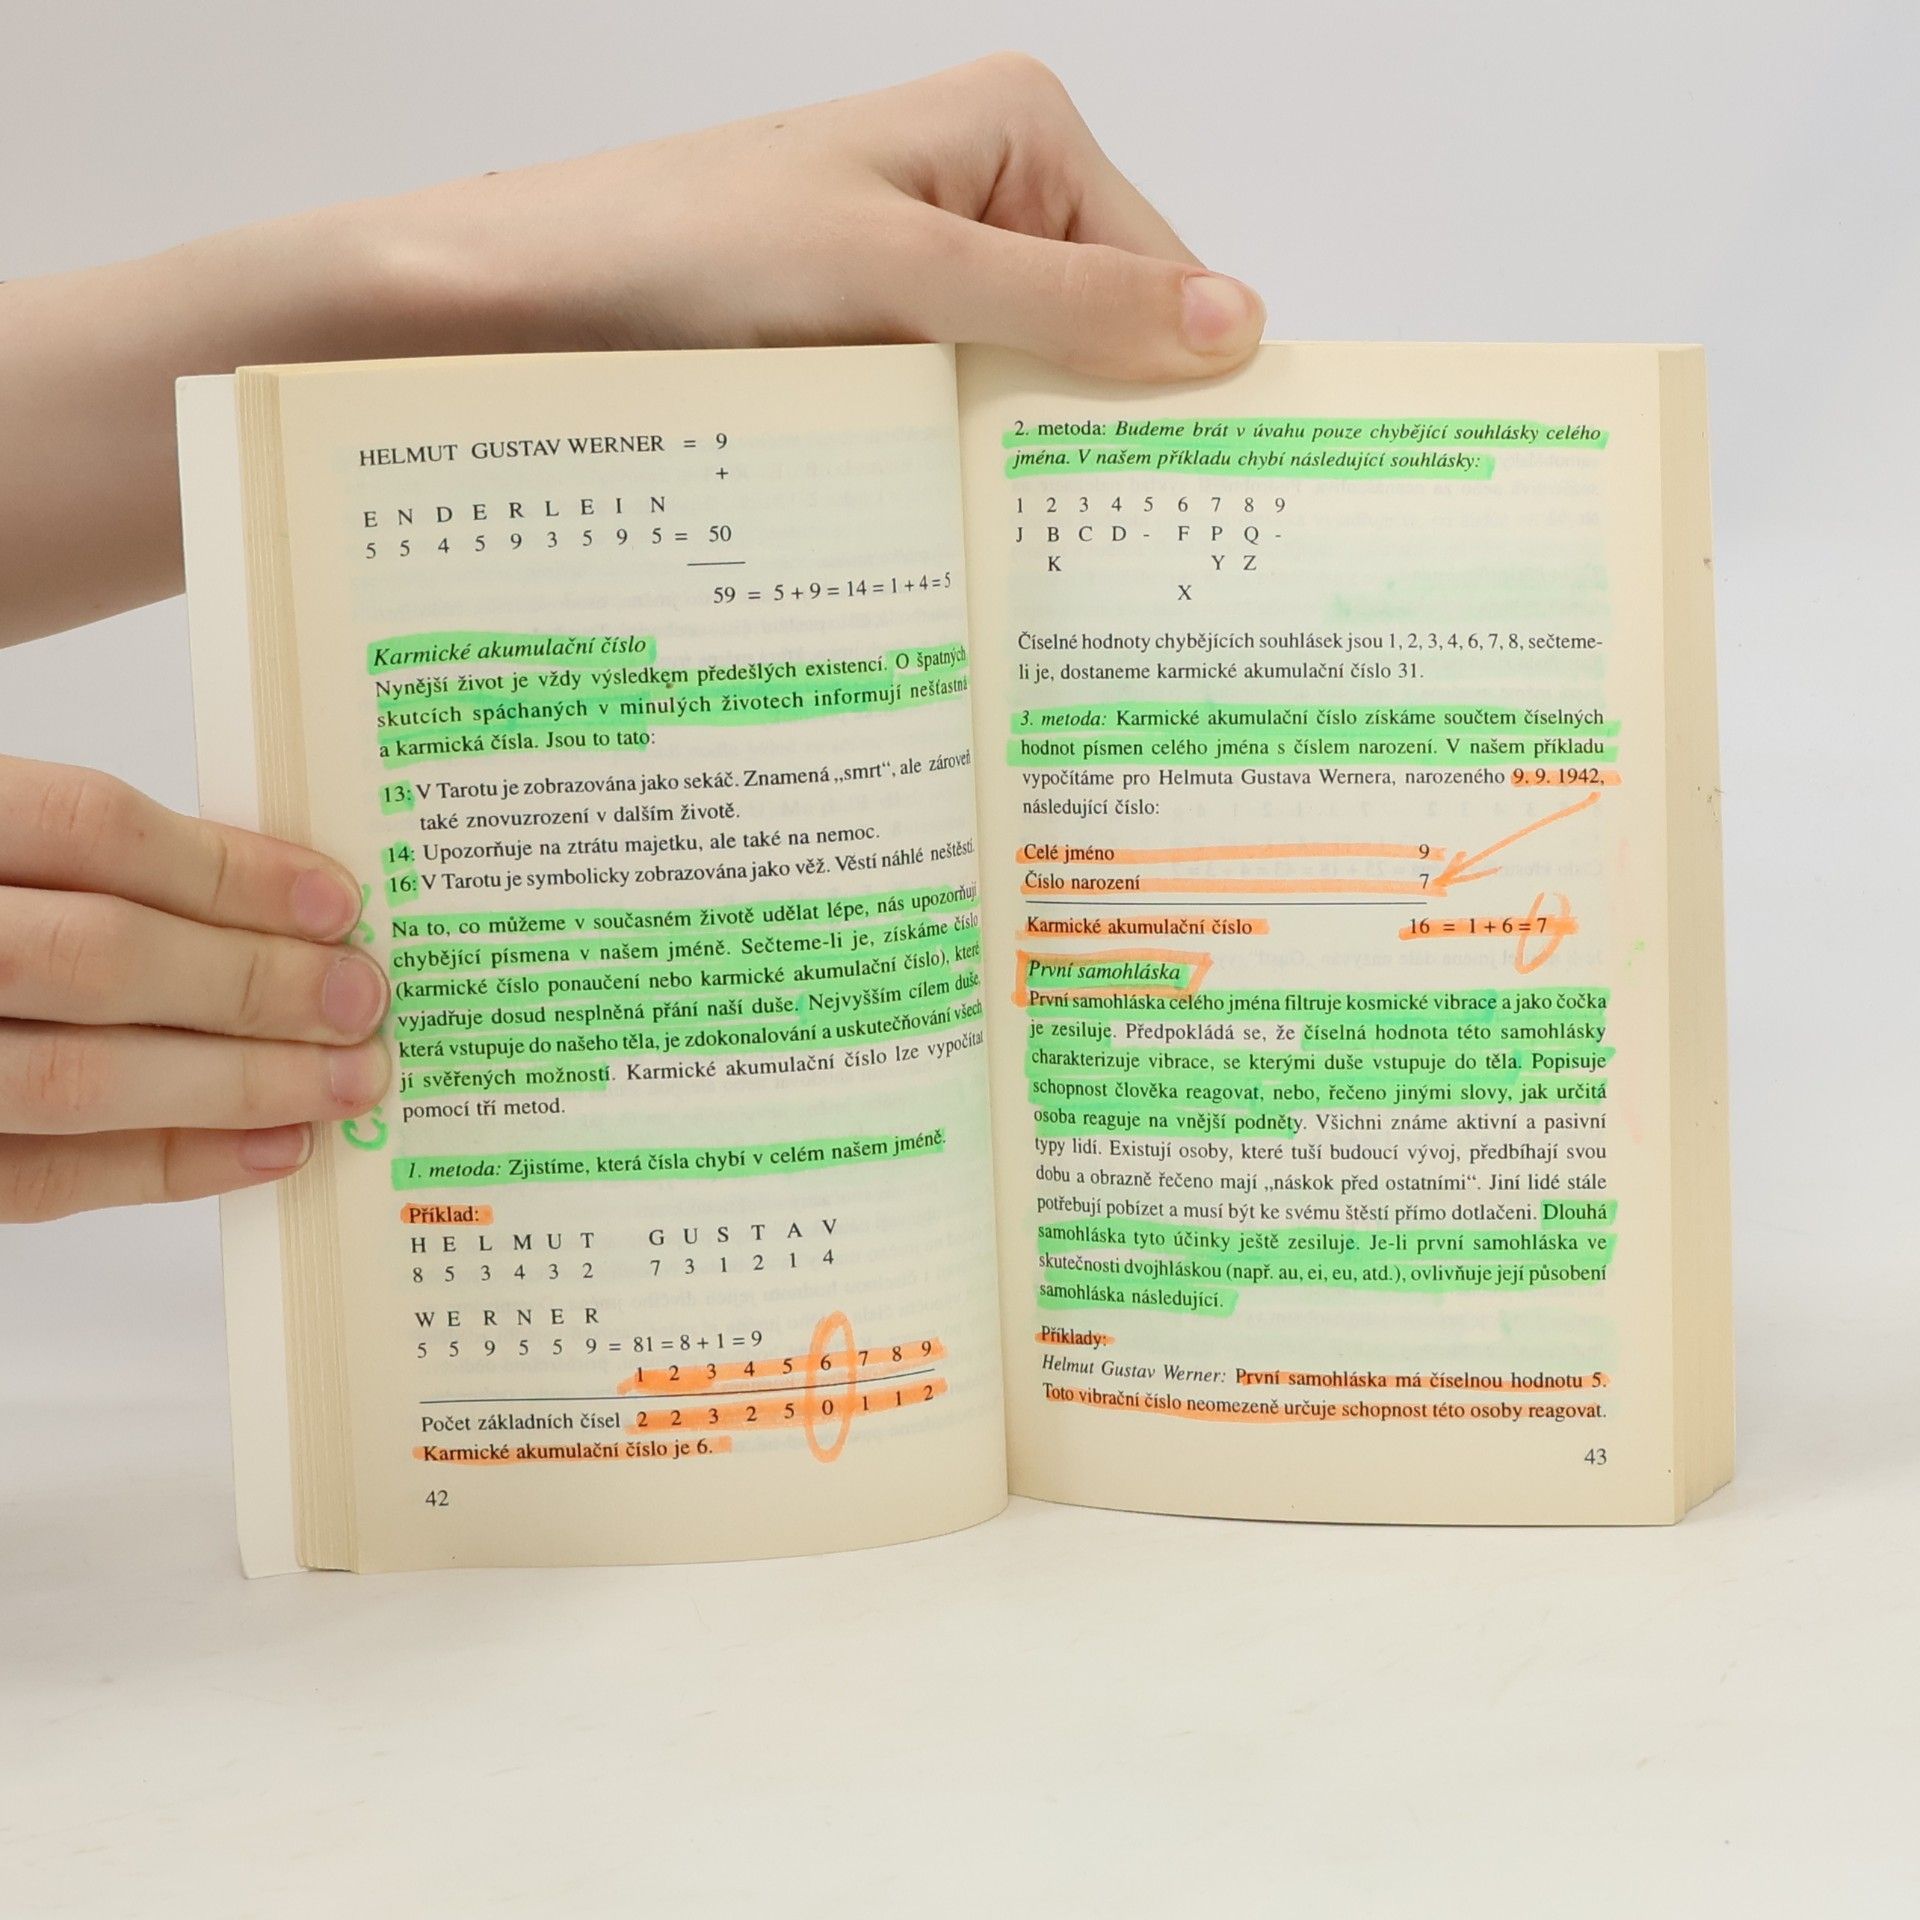 HELMUT GUSTAV WERNER = 9
+
E N D E R L E I N
5 5 4 5 9 3 5 9 5 = 50
59 = 5 + 9 = 14 = 1 + 4 = 5
Karmické akumulační číslo
Nynější život je vždy výsledkem předešlých existencí. O špatných
skutcích spáchaných v minulých životech informují nešťastná
a karmická čísla. Jsou to tato:
13: V Tarotu je zobrazována jako sekáč. Znamená „smrt“, ale zároveň
také znovuzrození v dalším životě.
14: Upozorňuje na ztrátu majetku, ale také na nemoc.
16: V Tarotu je symbolicky zobrazována jako věž. Věstí náhlé neštěstí.
Na to, co můžeme v současném životě udělat lépe, nás upozorňují
chybějící písmena v našem jméně. Sečteme-li je, získáme číslo
(karmické číslo ponaučení nebo karmické akumulační číslo), které
vyjadřuje dosud nesplněná přání naší duše. Nejvyšším cílem duše,
která vstupuje do našeho těla, je zdokonalování a uskutečňování všech
jí svěřených možností. Karmické akumulační číslo lze vypočítat
pomocí tří metod.
1. metoda: Zjistíme, která čísla chybí v celém našem jméně.
Příklad:
H E L M U T G U S T A V
8 5 3 4 3 2 7 3 1 2 1 4
W E R N E R
5 5 9 5 5 9 = 81 = 8 + 1 = 9
1 2 3 4 5 6 7 8 9
Počet základních čísel 2 2 3 2 5 0 1 1 2
Karmické akumulační číslo je 6.
42
2. metoda: Budeme brát v úvahu pouze chybějící souhlásky celého
jména. V našem příkladu chybí následující souhlásky:
1 2 3 4 5 6 7 8 9
J B C D - F P Q -
K Y Z
X
Číselné hodnoty chybějících souhlásek jsou 1, 2, 3, 4, 6, 7, 8, sečteme-
li je, dostaneme karmické akumulační číslo 31.
3. metoda: Karmické akumulační číslo získáme součtem číselných
hodnot písmen celého jména s číslem narození. V našem příkladu
vypočítáme pro Helmuta Gustava Wernera, narozeného 9. 9. 1942,
následující číslo:
Celé jméno 9
Číslo narození 7
Karmické akumulační číslo 16 = 1 + 6 = 7
První samohláska
První samohláska celého jména filtruje kosmické vibrace a jako čočka
je zesiluje. Předpokládá se, že číselná hodnota této samohlásky
charakterizuje vibrace, se kterými duše vstupuje do těla. Popisuje
schopnost člověka reagovat, nebo, řečeno jinými slovy, jak určitá
osoba reaguje na vnější podněty. Všichni známe aktivní a pasivní
typy lidí. Existují osoby, které tuší budoucí vývoj, předbíhají svou
dobu a obrazně řečeno mají „náskok před ostatními“. Jiní lidé stále
potřebují pobízet a musí být ke svému štěstí přímo dotlačeni. Dlouhá
samohláska tyto účinky ještě zesiluje. Je-li první samohláska ve
skutečnosti dvojhláskou (např. au, ei, eu, atd.), ovlivňuje její působení
samohláska následující.
Příklady:
Helmut Gustav Werner: První samohláska má číselnou hodnotu 5.
Toto vibrační číslo neomezeně určuje schopnost této osoby reagovat.
43